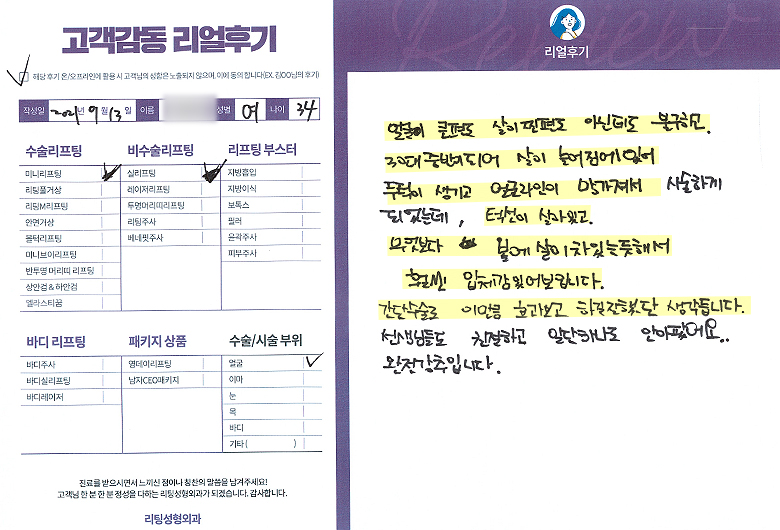 고객감동 리얼후기
해당 후기 온/오프라인에 활용 시 고객님의 성함은 노출되지 않으며, 이에 동의 합니다(EX. 김OO님의 후기)
작성일 2021년 9월 13일 이름 성별 여 나이 34
수술리프팅
미니리프팅
리팅풀거상
리팅M리프팅
안면거상
울터리프팅
미니브이리프팅
반투명 머리띠 리프팅
상안검 & 하안검
엘라스티꿈
비수술리프팅
실리프팅
레이저리프팅
투명머리띠리프팅
리팅주사
베네핏주사
리프팅 부스터
지방흡입
지방이식
보톡스
필러
윤곽주사
피부주사
바디 리프팅
바디주사
바디실리프팅
바디레이저
패키지 상품
영테이리프팅
남자CEO패키지
수술/시술 부위
얼굴
이마
눈
목
바디
기타 ( )
진료를 받으시면서 느끼신 점이나 칭찬의 말씀을 남겨주세요!
고객님 한 분 한 분 정성을 다하는 리팅성형외과가 되겠습니다. 감사합니다.
리팅성형외과
Review
리얼후기
얼굴이 큰편도 살이 찐편도 아닌데도 불구하고.
30대 중반이 되어 살이 늘어짐에 있어
투턱이 생기고 얼굴라인이 망가져서 시술하게
되었는데, 턱선이 살아있고.
무엇보다 볼에 살이 차있는듯해서
훨씬 입체감있어보입니다.
간단수술로 이만큼 효과보고 하길잘했단 생각듭니다.
선생님들도 친절하고 일단하나도 안아팠어요..
완전강추입니다.